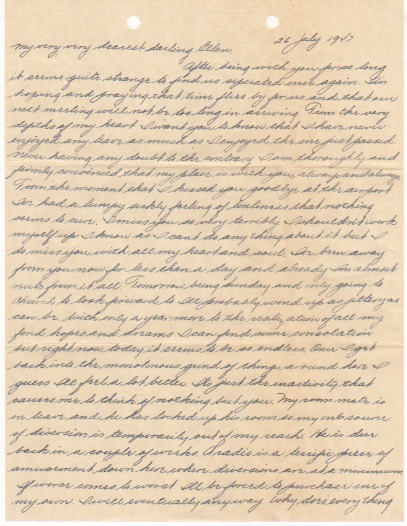 26 July 1947
My very very dearest darling Ellen,
After being with you for so long
it seems quite strange to find us seperated once again. I'm
hoping and praying that time flies by for us and that our
next meeting will not be too long in arriving. From the very
depths of my heart I want you to know that I have never
enjoyed any leave as much as I enjoyed the one just passed
never having any doubt to the contrary I am thoroughly and
firmly convinced that my place is with you, always and always
From the moment that I kissed you goodbye at the airport
I've had a lumpy sickly feeling of loneliness that nothing
seems to cure. I miss you so very terribly I shouldn't work
myself up I know as I can't do anything about it but I
do miss you with all my heart and soul. I've been away
from you now for less than a day and already I'm almost
nuts from it all Tomorrow being Sunday and only going to
church to look forward to I'll probably wind up as jittery as
can be. With only a year more to the realization of all my
fond hopes and dreams I can find some consolation
but right now, today, it seems to be so endless. Once I get
back into the monotonous grind of things around here I
guess I'll feel a lot better. It's just the inactivity that
causes me to think of nothing but you. My room mate is
on leave and he has locked up his room so my one source
of diversion is temporarily out of my reach. He is due
back in a couple of weeks. A radio is a terrific piece of
amusement down here where diversions are at a minimum
If worse comes to worst I'll be forced to purchase one of
my own. I will eventually anyway Why does everything